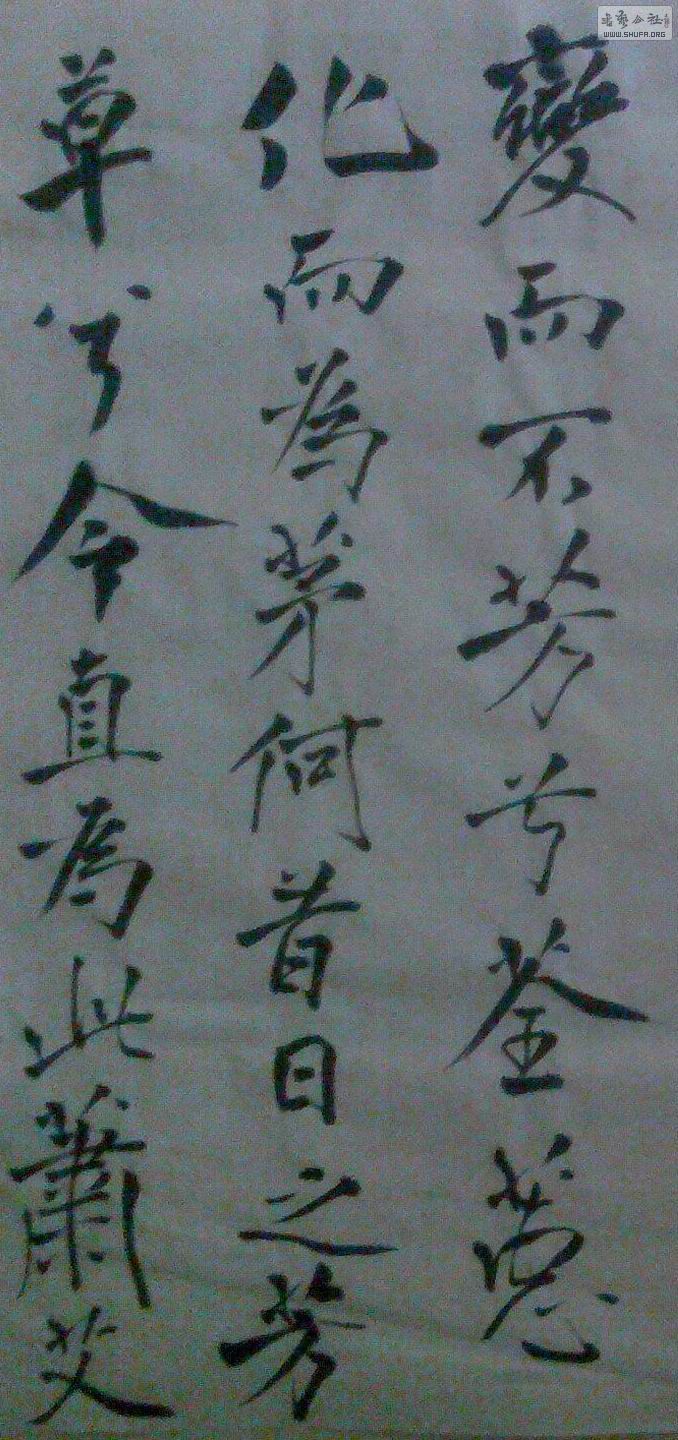 變而不芳兮荃蕙
化而為茅何昔日之芳
草兮今直為此蕭艾
WWW.SHUFA.ORG